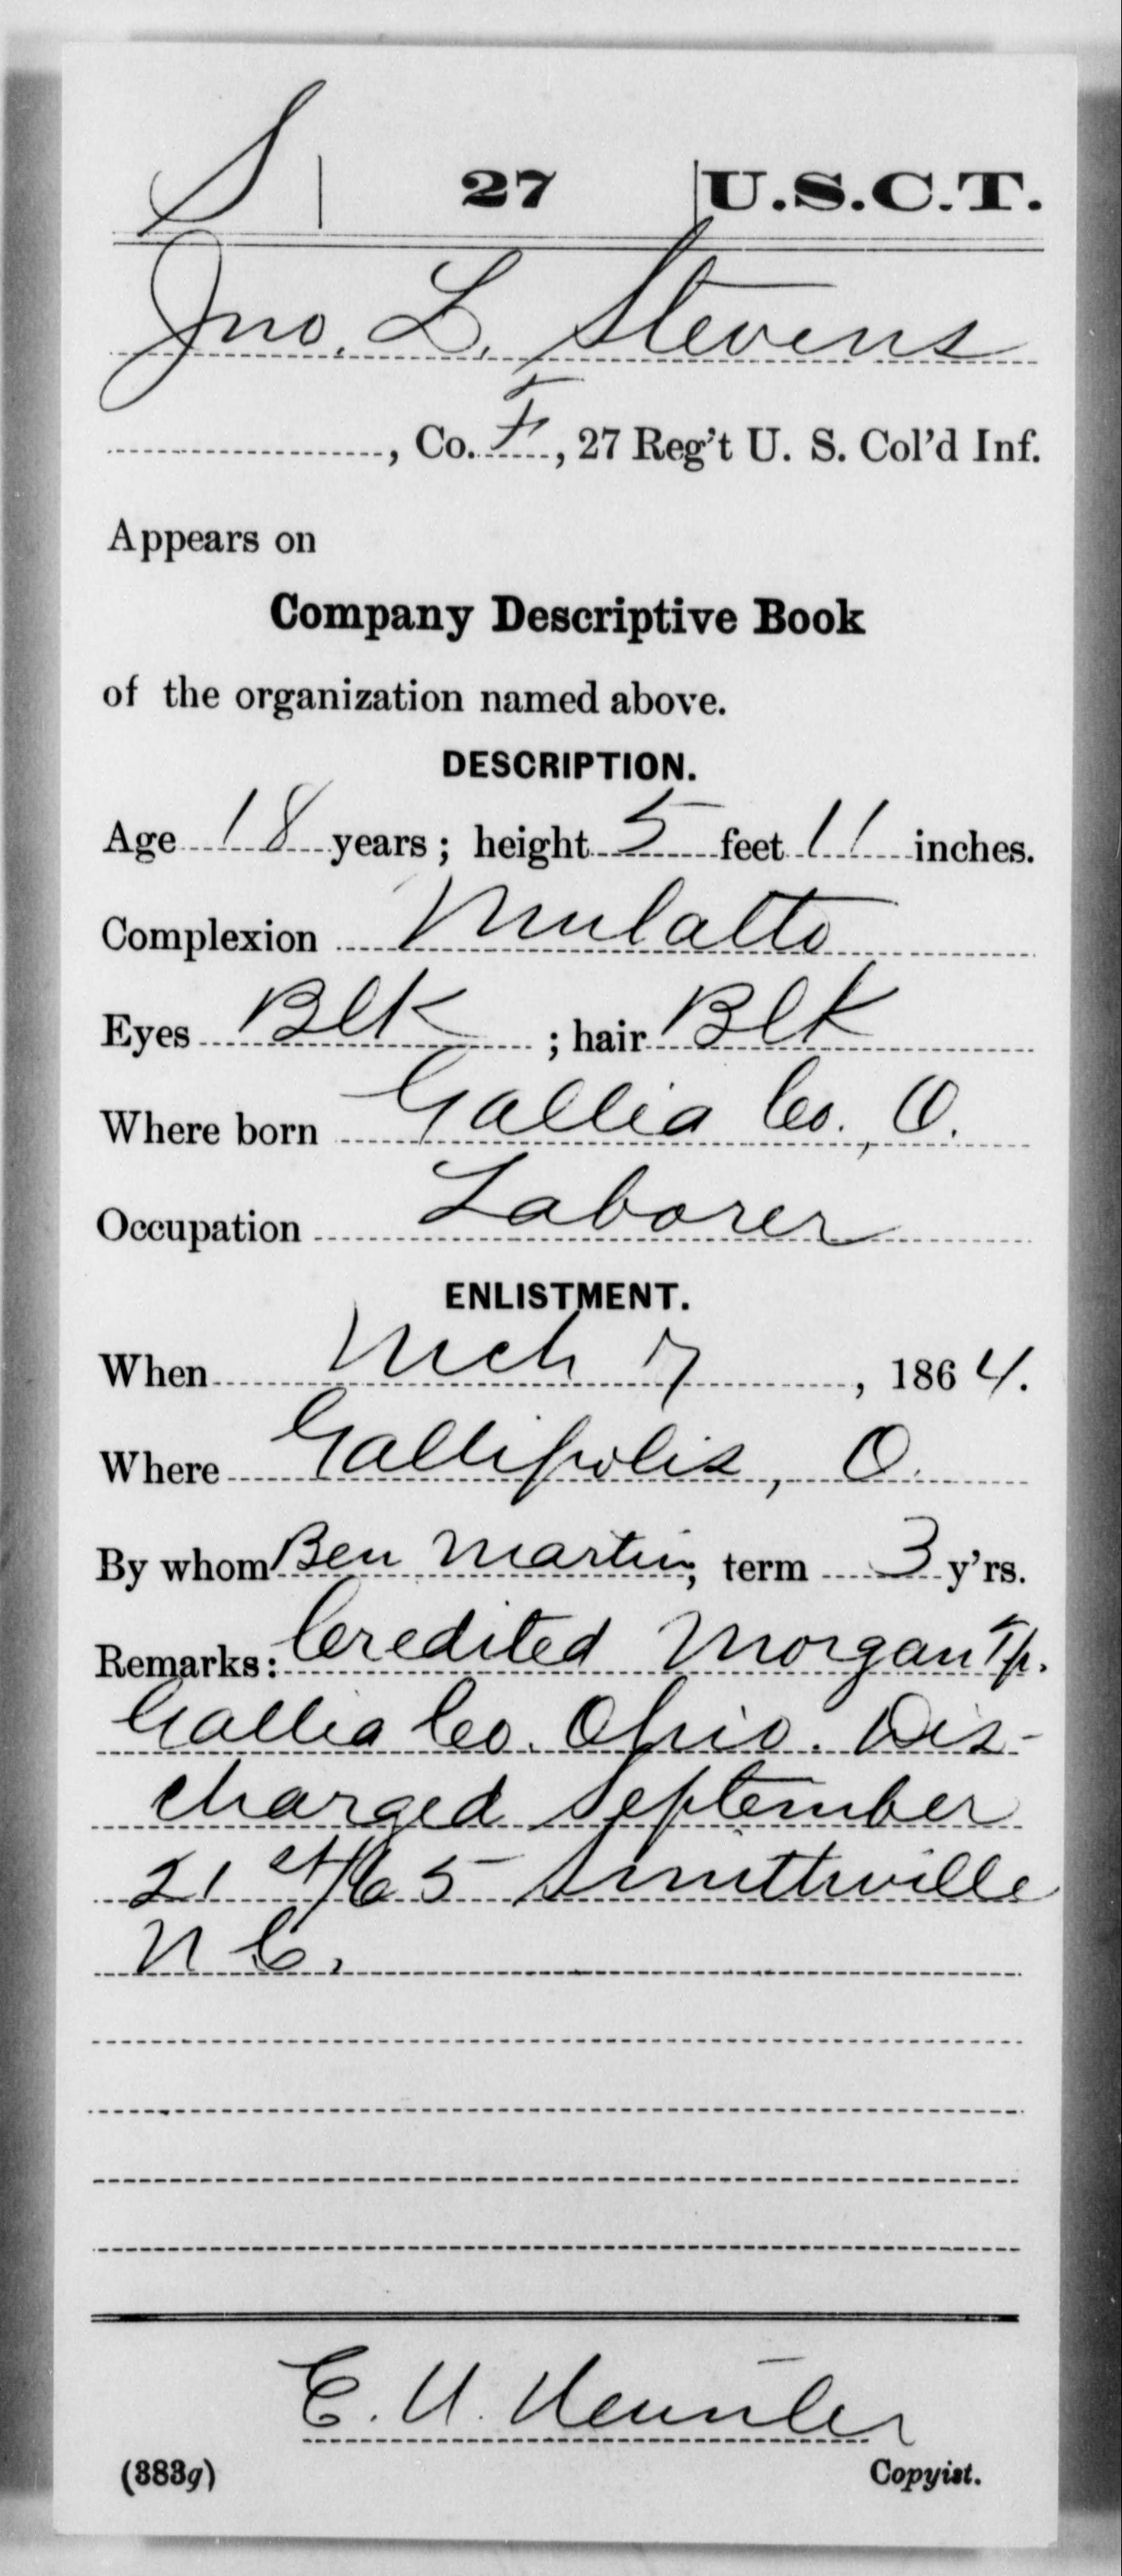 S | 27 | U.S.C.T.
Jno. L. Stevens
, Co. F, 27 Reg't U. S. Col'd Inf.
Appears on
Company Descriptive Book
of the organization named above.
DESCRIPTION.
Age 18 years; height 5 feet 11 inches.
Complexion Mulatto
Eyes Blk ; hair Blk
Where born Gallia Co., O.
Occupation Laborer
ENLISTMENT.
When Mch 7, 1864.
Where Gallipolis, O.
By whom Ben Martin; term 3 y'rs.
Remarks: Credited Morgan Tp.
Gallia Co. Ohio. Dis-
charged September
21st/65 Smithville
N C.
E. U.
(383g) Copyist.